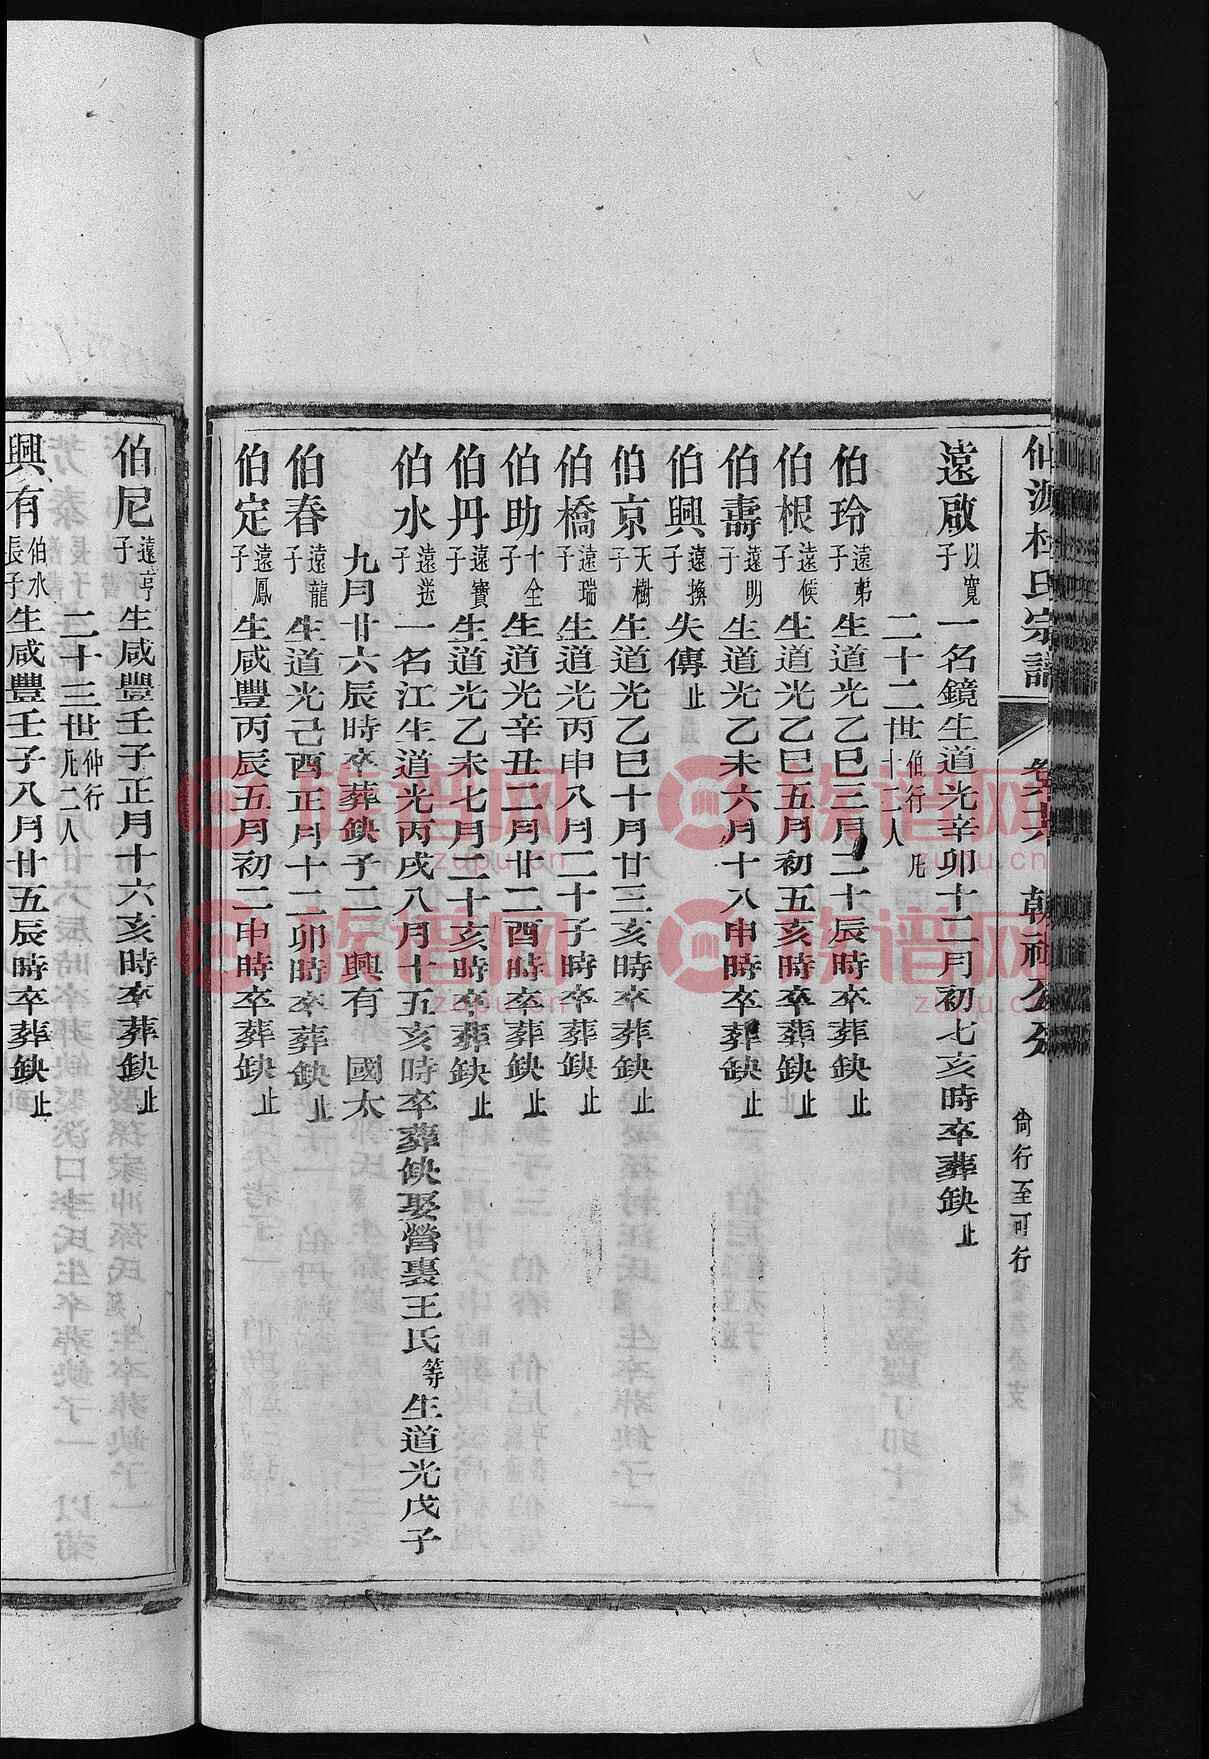 氏宗譜 朝 公分 尙行至可行
遠啟以寬子一名鏡生道光辛卯十二月初七亥時卒葬缺止
二十二世伯行凡十二人
伯玲遠弟子生道光乙巳三月二十辰時卒葬缺止
伯根遠候子生道光乙巳五月初五亥時卒葬缺止
伯壽遠明子生道光乙未六月十八申時卒葬缺止
伯興遠換子失傳止
伯京天樹子生道光乙巳十月廿三亥時卒葬缺止
伯橋遠瑞子生道光丙申八月二十子時卒葬缺止
伯助十全子生道光辛丑二月廿二酉時卒葬缺止
伯丹遠寶子生道光乙未七月二十亥時卒葬缺止
伯水遠送子一名江生道光丙戌八月十五亥時卒葬缺娶營裏王氏等生道光戊子
九月廿六辰時卒葬缺子二興有 國太
伯春遠龍子生道光己酉正月十二卯時卒葬缺止
伯定遠鳳子生咸豐丙辰五月初二申時卒葬缺止
伯尼遠亨子生咸豐壬子正月十六亥時卒葬缺止
二十三世仲行凡二人
興有伯水長子生咸豐壬子八月廿五辰時卒葬缺止
族谱网
zupu.cn
族谱网
zupu.cn
族谱网
zupu.cn
族谱网
zupu.cn